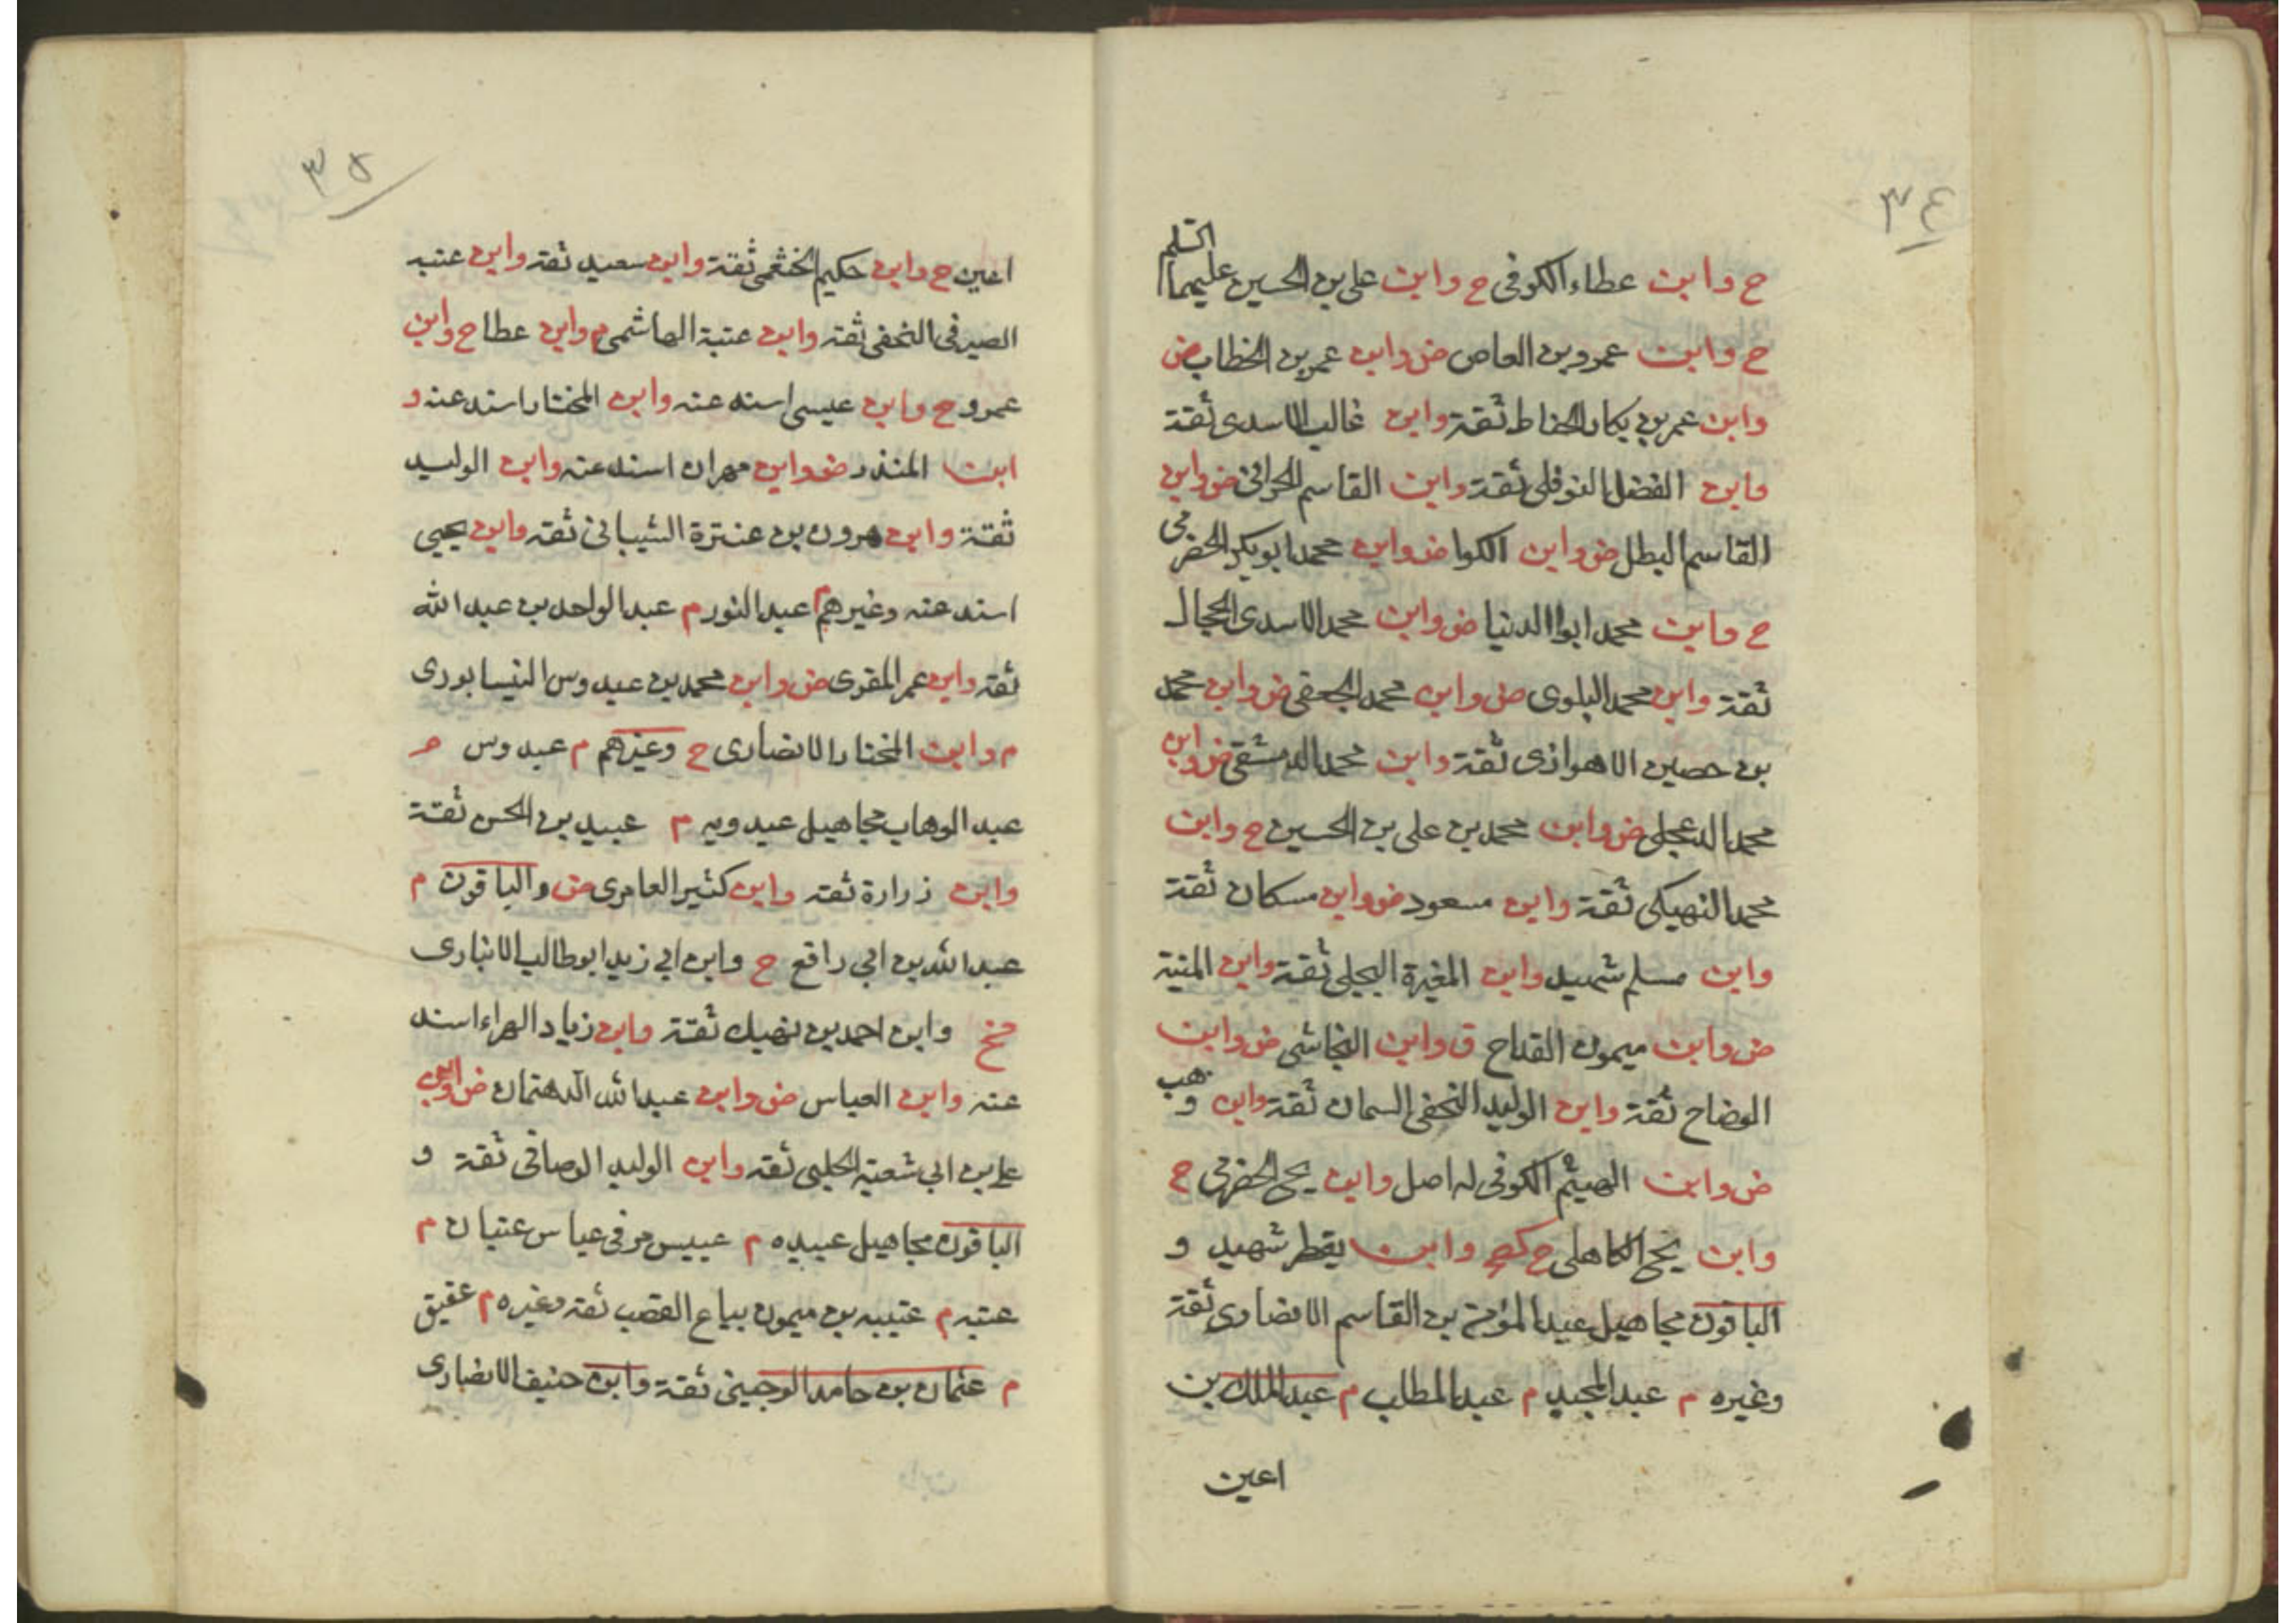 ٣٤
ح وابن عطاء الكوفى ح وابن على بن الحسين عليهما السلم
ح وابن عمرو بن العاص ض وابن عمر بن الخطاب ض
وابن عمر بن بكار الحناط ثقة وابن غالب الاسدى ثقة
وابن الفضل النوفلى ثقة وابن القاسم الحرانى ض وابن
القاسم البطل ض وابن الكوا ض وابن محمد ابو بكر الحضرمى
ح وابن محمد ابوا الدنيا ض وابن محمد الاسدى الحجال
ثقة وابن محمد البلوى ض وابن محمد الجعفى ض وابن محمد
بن حصين الاهوازى ثقة وابن محمد الدمشقى ض وابن
محمد الدعجلى ض وابن محمد بن على بن الحسين ح وابن
محمد النهيكى ثقة وابن مسعود ض وابن مسكان ثقة
وابن مسلم شهيد وابن المغيرة البجلى ثقة وابن المنية
ض وابن ميمون القداح ق وابن النجاشى ض وابن
الوضاح ثقة وابن الوليد النخفى السمان ثقة وابن وهب
ض وابن الهيثم الكوفى له اصل وابن يحى الحضرمى ح
وابن يحى الكاهلى ح وابن يقطر شهيد و
الباقون مجاهيل عبد المؤمن بن القاسم الانصارى ثقة
وغيره م عبد المجيد م عبد المطلب م عبد الملك بن
اعين
٣٥
اعين ح وابن حكيم الخثعمى ثقة وابن سعيد ثقة وابن عتبه
الصيرفى النخفى ثقة وابن عتبة الهاشمى م وابن عطا ح وابن
عمرو ح وابن عيسى اسند عنه وابن المختار اسند عنه و
ابن المنذر ض وابن مهران اسند عنه وابن الوليد
ثقة وابن هرون بن عنترة الشيبانى ثقة وابن يحيى
اسند عنه وغيرهم م عبد النور م عبد الواحد بن عبد الله
ثقة وابن عمر المقرى ض وابن محمد بن عبدوس النيسابورى
م وابن المختار الانصارى ح وغيرهم م عبدوس م
عبد الوهاب مجاهيل عبدويه م عبيد بن الحسن ثقة
وابن زرارة ثقة وابن كثير العامرى ض والباقون م
عبد الله بن ابى رافع ح وابن ابى زيد ابو طالب الانبارى
وابن احمد بن نهيك ثقة وابن زياد الهراء اسند
عنه وابن العباس ض وابن عبد الله الدهتمان ض وابن
على بن ابى شعبة الحلبى ثقة وابن الوليد الوصافى ثقة و
الباقون مجاهيل عبيده م عبيس مر فى عباس عتبان م
عتبه م عتيبه بن ميمون بياع القصب ثقة وغيره م عقيق
م عثمان بن حامد الوجينى ثقة وابن حنيف الانصارى